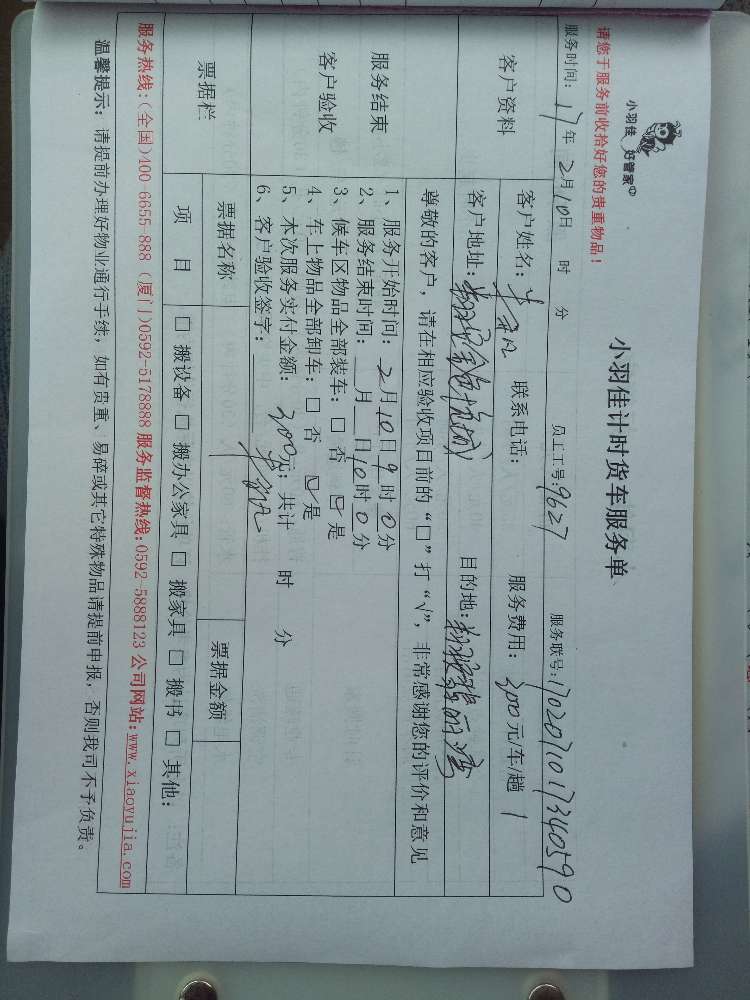 小羽佳 好管家
小羽佳计时货车服务单
请您于服务前收拾好您的贵重物品!
服务时间: 17年2月10日 时 分 员工工号:9627 服务联号:17020710173405 90
客户资料
客户姓名: 联系电话: 服务费用: 300元车/趟 1
客户地址: 目的地:
尊敬的客户,请在相应验收项目前的“□”打“√”,非常感谢您的评价和意见
服务结束
客户验收
1、服务开始时间: 2月10日9时0分
2、服务结束时间: 月 日10时0分
3、候车区物品全部装车:□ 否 ☑ 是
4、车上物品全部卸车:□ 否 ☑ 是
5、本次服务实付金额: 300元;共计 时 分
6、客户验收签字:
票据栏
票据名称 票据金额
项 目 □ 搬设备 □ 搬办公家具 □ 搬家具 □ 搬书 □ 其他:
服务热线:(全国)400-6655-888 (厦门)0592-5178888 服务监督热线:0592-5888123 公司网站:www.xiaoyujia.com
温馨提示: 请提前办理好物业通行手续,如有贵重、易碎或其它特殊物品请提前申报,否则我司不予负责。